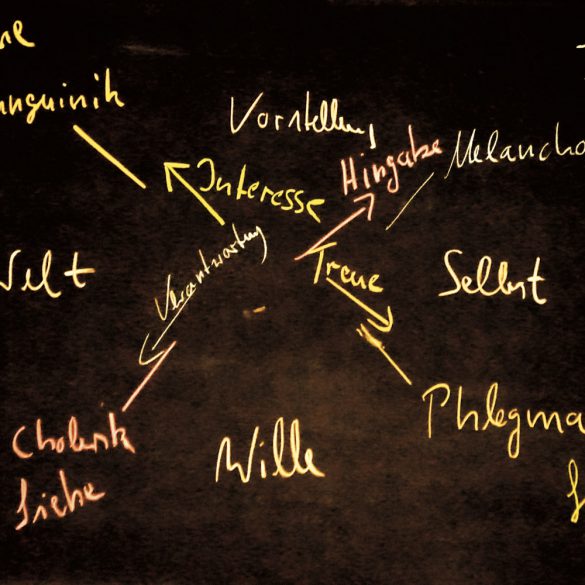 anguinik
Vorstellung
Hingabe
Melancho
Interesse
Verantwortung
Treue
Welt
Selbst
Phlegma
Cholerik
Wille
Liebe